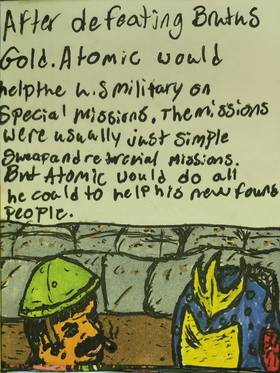 After defeating Brutus
Gold. Atomic would
help the U.S military on
Special missions. The missions
were usually just simple
Sweap and retreival missions.
But Atomic would do all
he could to help his new found
people.